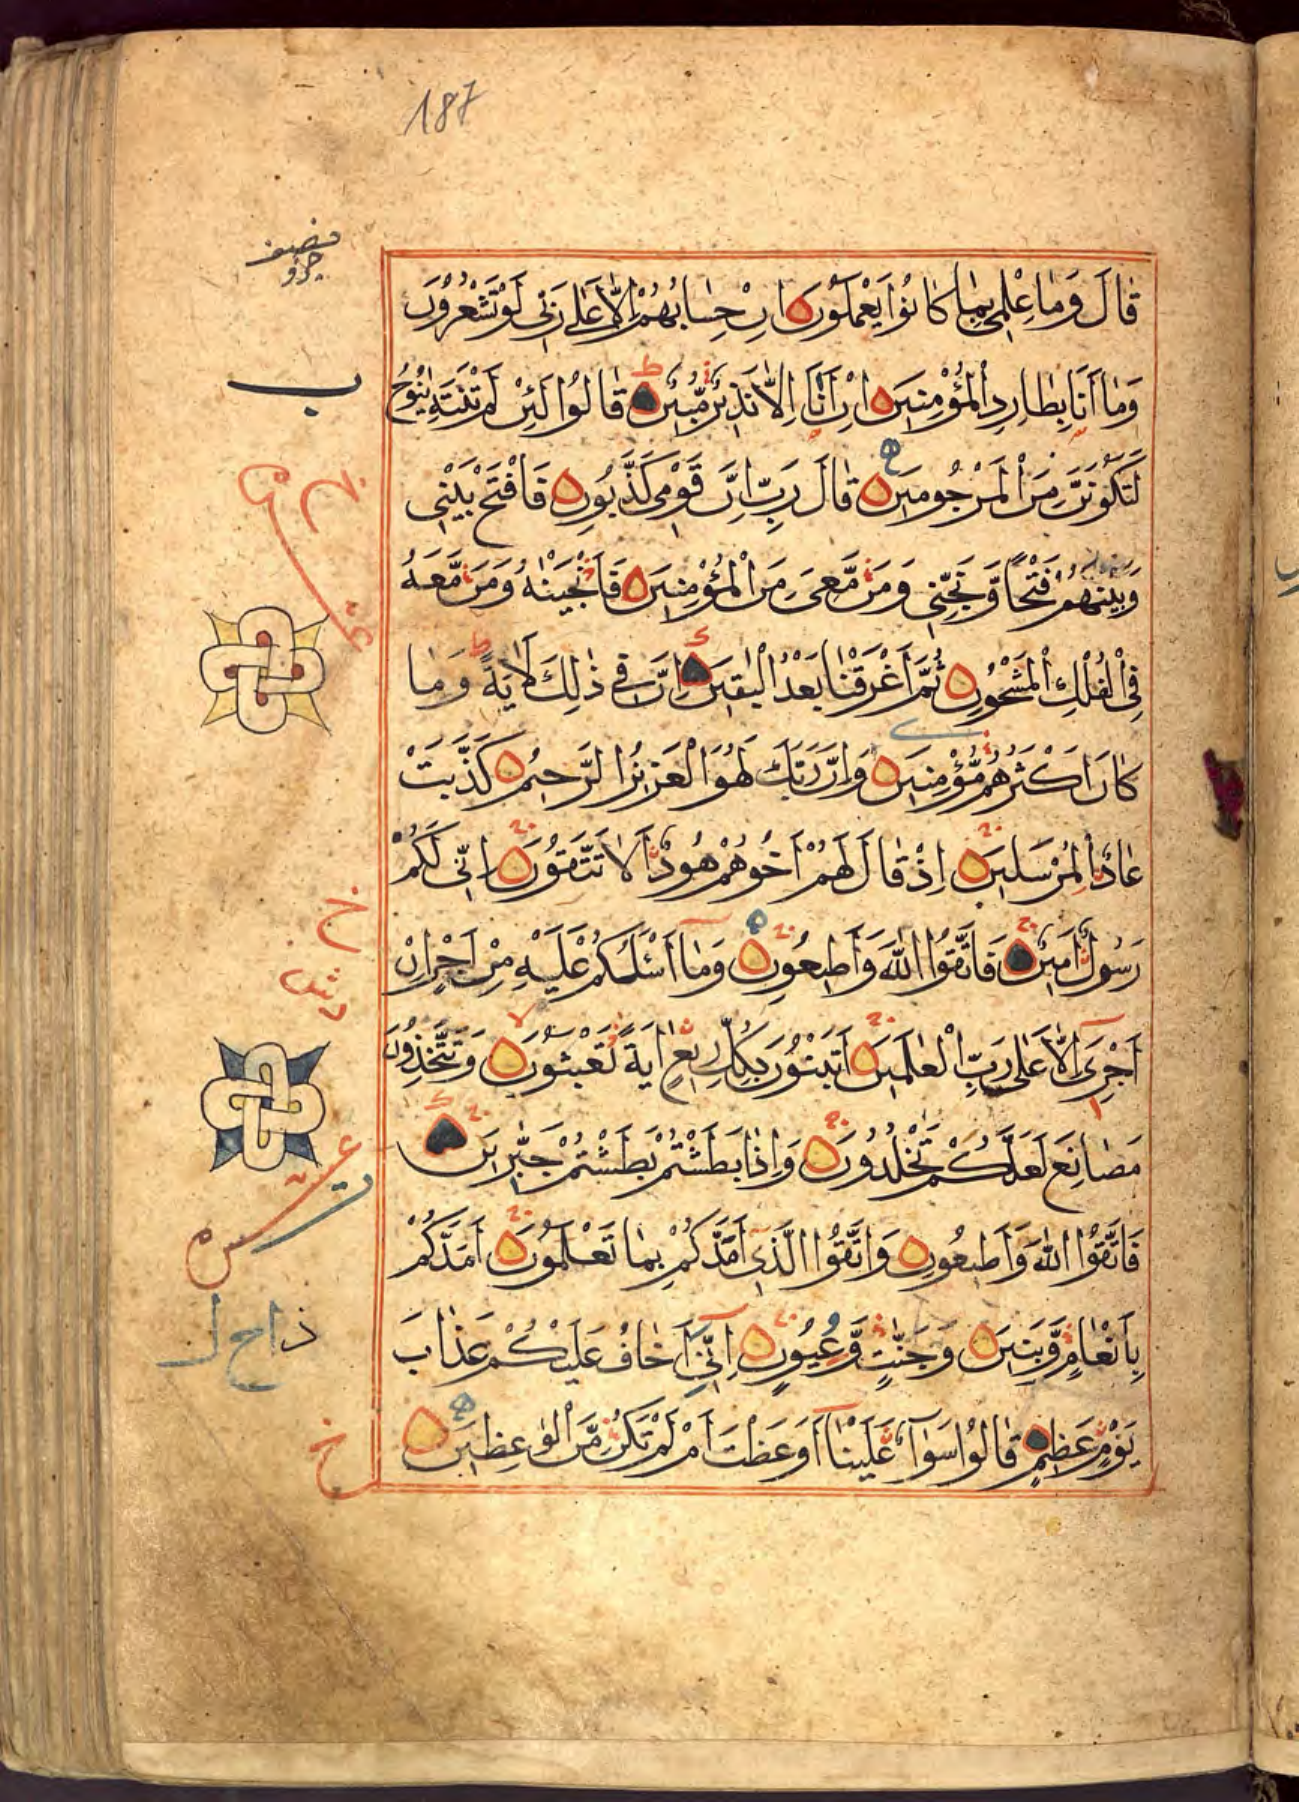 187
نصف
جزو
قٰالَ وَمٰا عِلْمٖى بِمٰا كٰانُوْا يَعْمَلُوْنَ اِنْ حِسٰابُهُمْ اِلَّا عَلٰى رَبّٖى لَوْ تَشْعُرُوْنَ
وَمٰا اَنَا بِطٰارِدِ الْمُؤْمِنٖينَ اِنْ اَنَا اِلَّا نَذٖيْرٌ مُّبٖيْنٌ قٰالُوْا لَئِنْ لَمْ تَنْتَهِ يٰنُوْحُ
ب
لَتَكُوْنَنَّ مِنَ الْمَرْجُومٖينَ قٰالَ رَبِّ اِنَّ قَوْمٖى كَذَّبُوْنِ فَافْتَحْ بَيْنٖى
وَبَيْنَهُمْ فَتْحًا وَّنَجِّنٖى وَمَنْ مَّعِىَ مِنَ الْمُؤْمِنٖينَ فَاَنْجَيْنٰهُ وَمَنْ مَّعَهُ
فِى الْفُلْكِ الْمَشْحُوْنِ ثُمَّ اَغْرَقْنٰا بَعْدُ الْبٰقٖينَ اِنَّ فٖى ذٰلِكَ لَاٰيَةً وَمٰا
كٰانَ اَكْثَرُهُمْ مُّؤْمِنٖينَ وَاِنَّ رَبَّكَ لَهُوَ الْعَزٖيْزُ الرَّحٖيْمُ كَذَّبَتْ
عٰادُ الْمُرْسَلٖينَ اِذْ قٰالَ لَهُمْ اَخُوْهُمْ هُوْدٌ اَلَا تَتَّقُوْنَ اِنّٖى لَكُمْ
رَسُوْلٌ اَمٖيْنٌ فَاتَّقُوا اللّٰهَ وَاَطٖيعُوْنِ وَمٰا اَسْئَلُكُمْ عَلَيْهِ مِنْ اَجْرٍ اِنْ
اَجْرِىَ اِلَّا عَلٰى رَبِّ الْعٰلَمٖينَ اَتَبْنُوْنَ بِكُلِّ رٖيْعٍ اٰيَةً تَعْبَثُوْنَ وَتَتَّخِذُوْنَ
مَصٰانِعَ لَعَلَّكُمْ تَخْلُدُوْنَ وَاِذٰا بَطَشْتُمْ بَطَشْتُمْ جَبّٰرٖينَ
فَاتَّقُوا اللّٰهَ وَاَطٖيعُوْنِ وَاتَّقُوا الَّذٖى اَمَدَّكُمْ بِمٰا تَعْلَمُوْنَ اَمَدَّكُمْ
بِاَنْعٰامٍ وَّبَنٖينَ وَجَنّٰتٍ وَّعُيُوْنٍ اِنّٖى اَخٰافُ عَلَيْكُمْ عَذٰابَ
يَوْمٍ عَظٖيْمٍ قٰالُوْا سَوٰآءٌ عَلَيْنٰا اَوَعَظْتَ اَمْ لَمْ تَكُنْ مِّنَ الْوٰعِظٖينَ